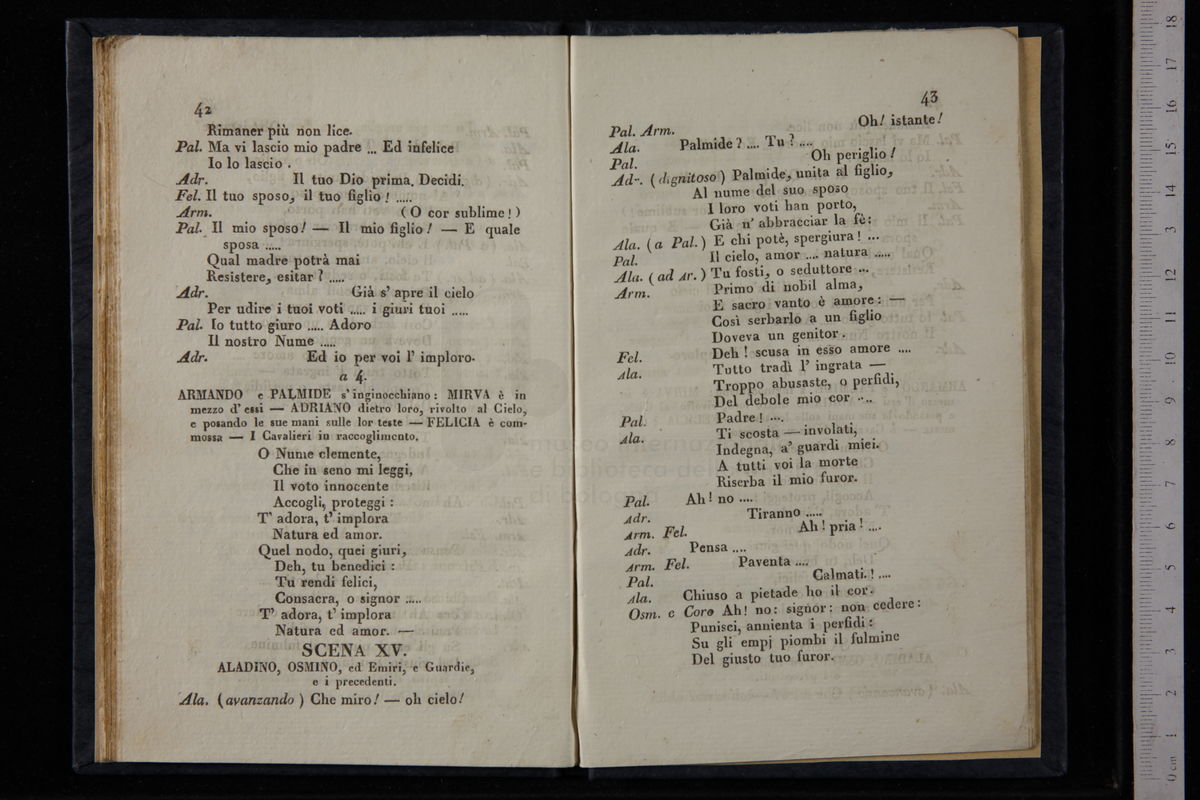 42
Rimaner più non lice.
Pal. Ma vi lascio mio padre ... Ed infelice
Io lo lascio .
Adr. Il tuo Dio prima. Decidi.
Fel. Il tuo sposo, il tuo figlio ! .....
Arm. ( O cor sublime ! )
Pal. Il mio sposo ! — Il mio figlio ! — E quale
sposa .....
Qual madre potrà mai
Resistere, esitar ? .....
Adr. Già s' apre il cielo
Per udire i tuoi voti ..... i giuri tuoi .....
Pal. Io tutto giuro ..... Adoro
Il nostro Nume .....
Adr. Ed io per voi l' imploro.
a 4.
ARMANDO e PALMIDE s' inginocchiano : MIRVA è in
mezzo d' essi — ADRIANO dietro loro, rivolto al Cielo,
e posando le sue mani sulle lor teste — FELICIA è com-
mossa — I Cavalieri in raccoglimento.
O Nume clemente,
Che in seno mi leggi,
Il voto innocente
Accogli, proteggi :
T' adora, t' implora
Natura ed amor.
Quel nodo, quei giuri,
Deh, tu benedici :
Tu rendi felici,
Consacra, o signor .....
T' adora, t' implora
Natura ed amor. —
SCENA XV.
ALADINO, OSMINO, ed Emiri, e Guardie,
e i precedenti.
Ala. ( avanzando ) Che miro ! — oh cielo !
43
Pal. Arm. Oh ! istante !
Ala. Palmide ? .... Tu ? ....
Pal. Oh periglio !
Adr. ( dignitoso ) Palmide, unita al figlio,
Al nume del suo sposo
I loro voti han porto,
Già n' abbracciar la fè :
Ala. ( a Pal. ) E chi potè, spergiura ! ...
Pal. Il cielo, amor .... natura .....
Ala. ( ad Ar. ) Tu fosti, o seduttore ...
Arm. Primo di nobil alma,
E sacro vanto è amore : —
Così serbarlo a un figlio
Doveva un genitor .
Fel. Deh ! scusa in esso amore ....
Ala. Tutto tradì l' ingrata —
Troppo abusaste, o perfidi,
Del debole mio cor ....
Pal. Padre ! ....
Ala. Ti scosta — involati,
Indegna, a' guardi miei.
A tutti voi la morte
Riserba il mio furor.
Pal. Ah ! no ....
Adr. Tiranno .....
Arm. Fel. Ah ! pria ! ....
Adr. Pensa ....
Arm. Fel. Paventa ....
Pal. Calmati. ! ....
Ala. Chiuso a pietade ho il cor.
Osm. e Coro Ah ! no : signor : non cedere :
Punisci, annienta i perfidi :
Su gli empj piombi il fulmine
Del giusto tuo furor.